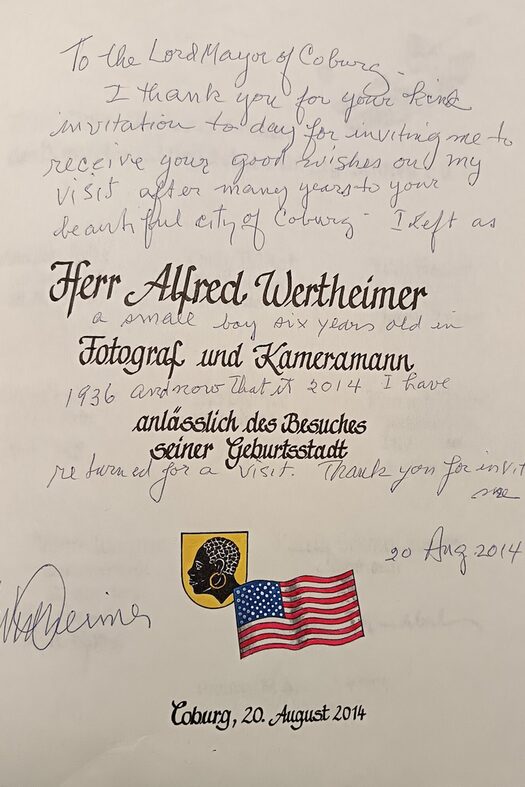 To the Lord Mayor of Coburg.
I thank you for your kind
invitation to day for inviting me to
receive your good wishes on my
visit after many years to your
beautiful city of Coburg - I left as
Herr Alfred Wertheimer
a small boy six years old in
Fotograf und Kameramann
1936 and now that it 2014 I have
anlässlich des Besuches
seiner Geburtsstadt
returned for a visit. Thank you for invit
me
20 Aug 2014
Wertheimer
Coburg, 20. August 2014